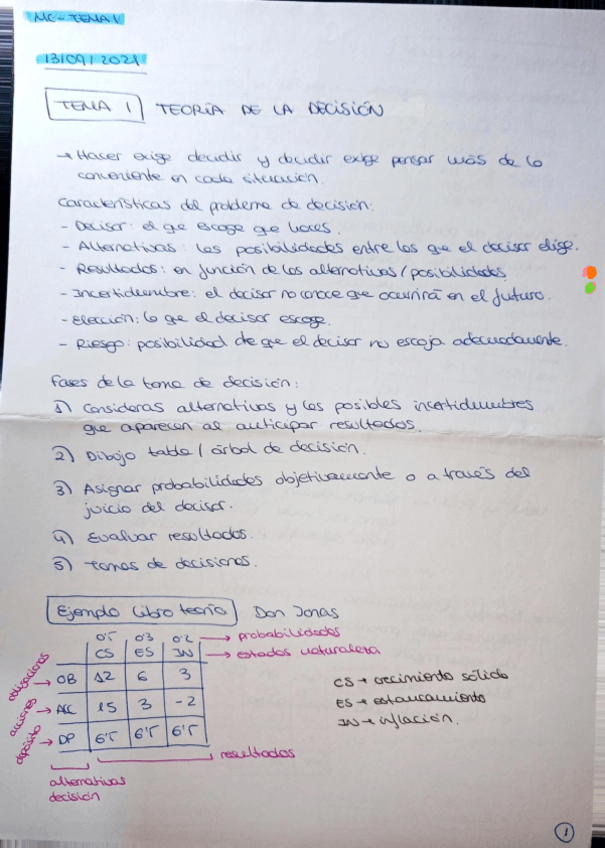 MC - TEMA 1
13/09/2021
TEMA 1 TEORÍA DE LA DECISIÓN
→ Hacer exige decidir y decidir exige pensar más de lo
conveniente en cada situación.
Características del problema de decisión:
- Decisor: el que escoge que haces.
- Alternativas: las posibilidades entre las que el decisor elige.
- Resultados: en función de las alternativas/posibilidades.
- Incertidumbre: el decisor no conoce que ocurrirá en el futuro.
- Elección: lo que el decisor escoge.
- Riesgo: posibilidad de que el decisor no escoja adecuadamente.
Fases de la toma de decisión:
1) Consideras alternativas y las posibles incertidumbres
que aparecen al anticipar resultados.
2) Dibujo tabla / árbol de decisión.
3) Asignar probabilidades objetivamente o a través del
juicio del decisor.
4) Evaluar resultados.
5) Tomas de decisiones.
Ejemplo libro teoría Don Jonas
0'5 0'3 0'2 → probabilidades
CS ES IN → estados naturaleza
obligaciones → OB 12 6 3
acciones → AC 15 3 -2
depósito → DP 6'5 6'5 6'5
resultados
alternativas
decisión
CS → crecimiento sólido
ES → estancamiento
IN → inflación.
1